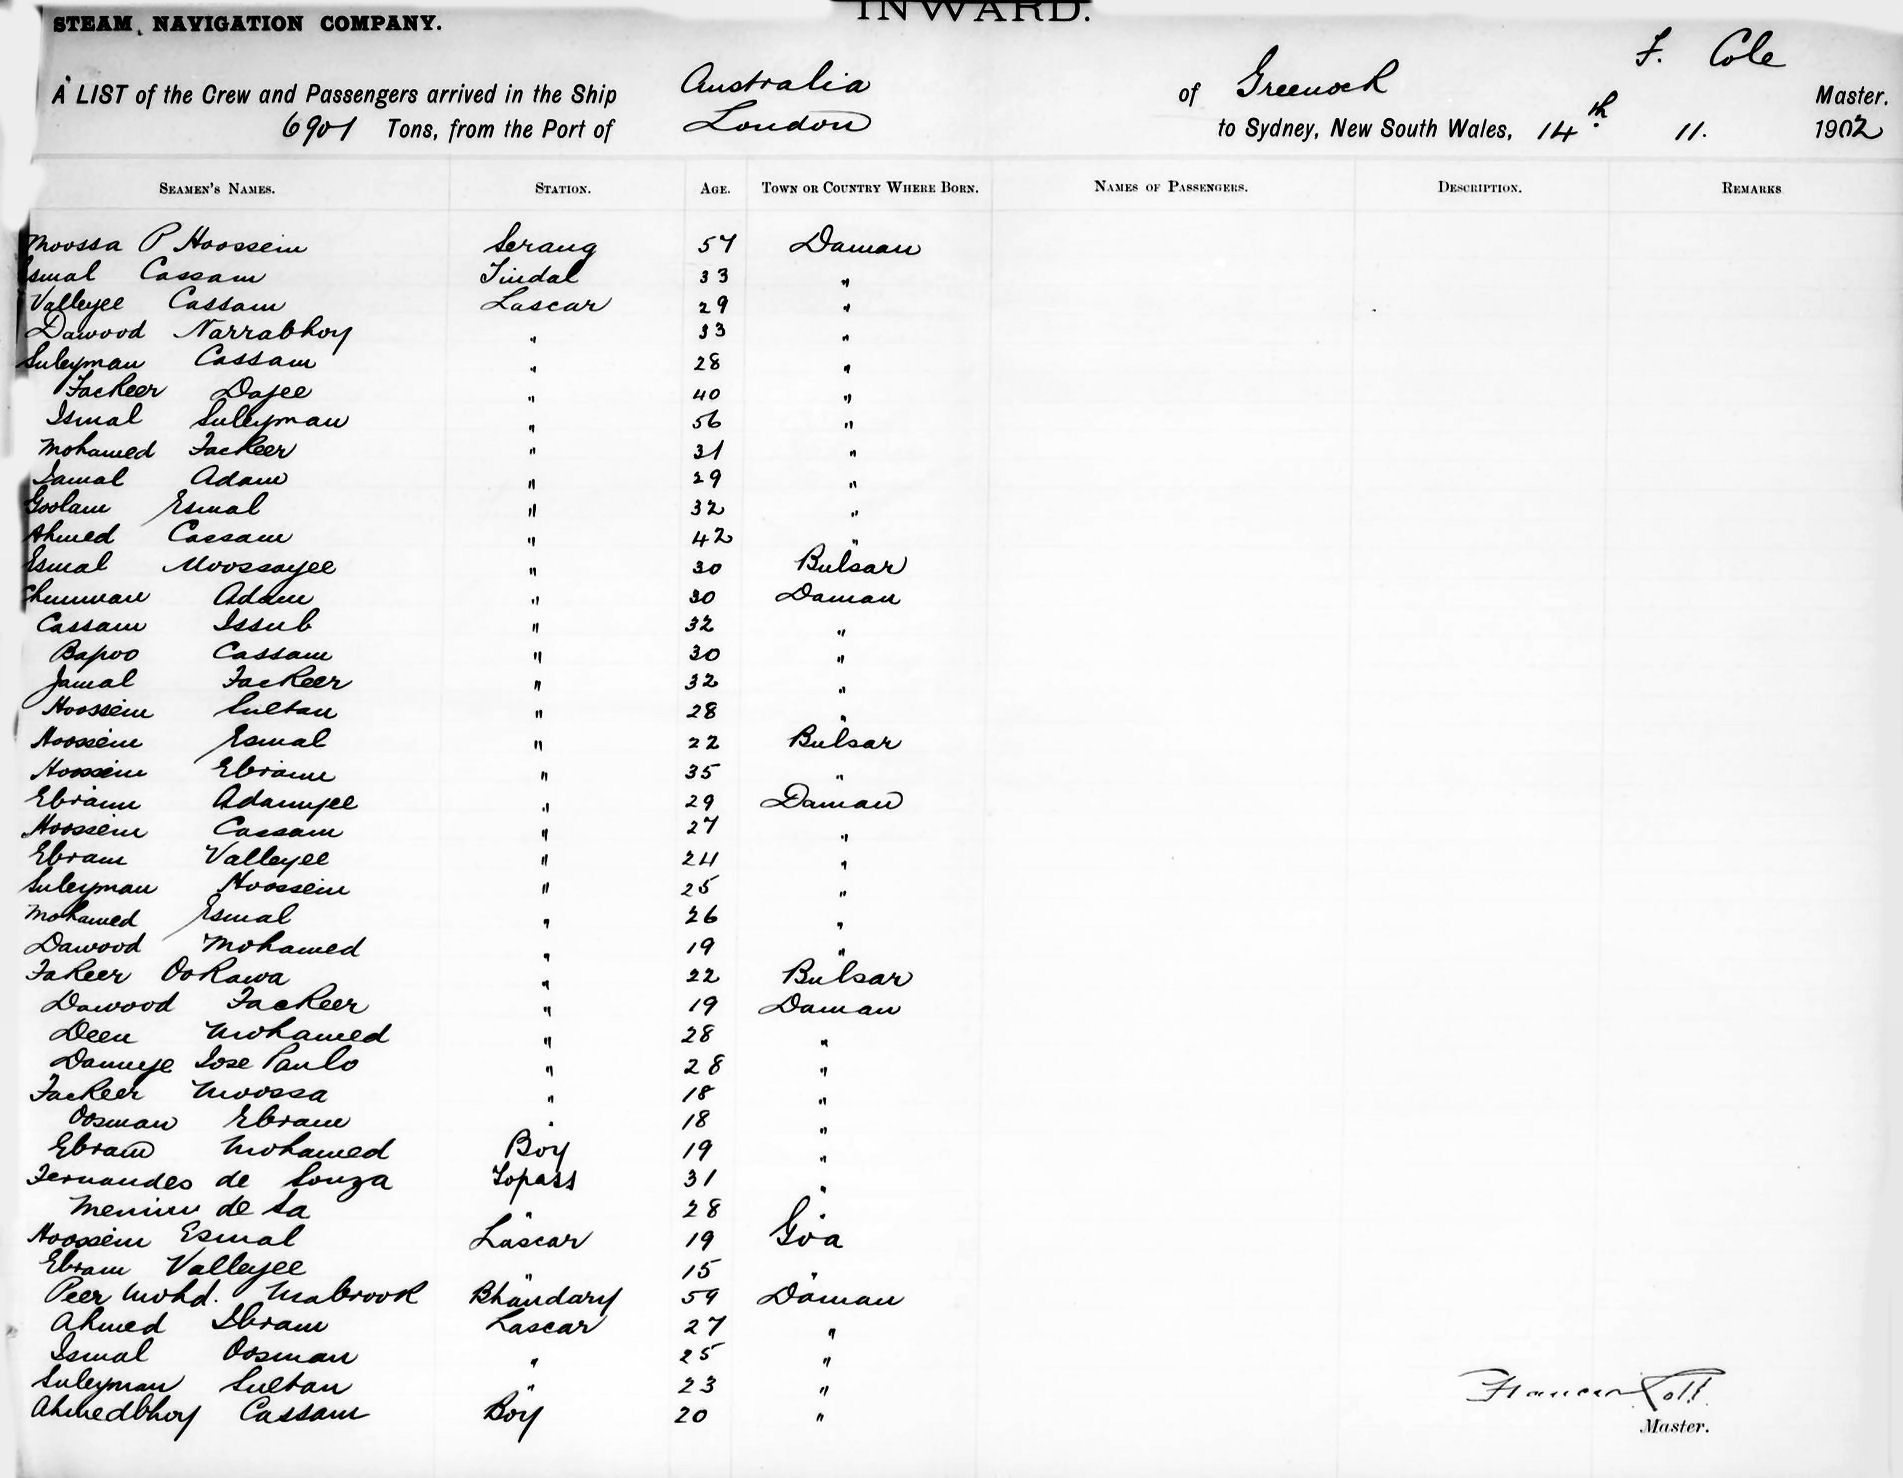 INWARD.
STEAM NAVIGATION COMPANY.
F. Cole
A LIST of the Crew and Passengers arrived in the Ship Australia of Greenock Master.
6901 Tons, from the Port of London to Sydney, New South Wales, 14th. 11. 1902
SEAMEN'S NAMES. STATION. AGE. TOWN OR COUNTRY WHERE BORN. NAMES OF PASSENGERS. DESCRIPTION. REMARKS
Moossa P Hoossein Serang 57 Daman
Ismal Cassam Tindal 33 "
Valleyee Cassam Lascar 29 "
Dawood Narrabhoy " 33 "
Suleyman Cassam " 28 "
Fackeer Dajee " 40 "
Ismal Suleyman " 56 "
Mohamed Fackeer " 31 "
Jamal Adam " 29 "
Goolam Esmal " 32 "
Ahmed Cassam " 42 "
Esmal Moossayee " 30 Bulsar
Adam " 30 Daman
Cassam Issub " 32 "
Bapoo Cassam " 30 "
Jamal Fackeer " 32 "
Hoossein Sultan " 28 "
Hoossein Esmal " 22 Bulsar
Hoossein Ebraim " 35 "
Ebraim Adamyee " 29 Daman
Hoossein Cassam " 27 "
Ebram Valleyee " 24 "
Suleyman Hoossein " 25 "
Mohamed Esmal " 26 "
Dawood Mohamed " 19 "
Fakeer Ookawa " 22 Bulsar
Dawood Fackeer " 19 Daman
Deen Mohamed " 28 "
Jose Paulo " 28 "
Fackeer Moossa " 18 "
Oosman Ebram " 18 "
Ebram Mohamed Boy 19 "
Fernandes de Souza Topass 31 "
de Sa " 28
Hoossein Esmal Lascar 19 Goa
Ebram Valleyee " 15 "
Peer Mohd. Mabrook Bhandary 59 Daman
Ahmed Ibram Lascar 27 "
Ismal Oosman " 25 "
Suleyman Sultan " 23 "
Ahmedbhoy Cassam Boy 20 "
Master.